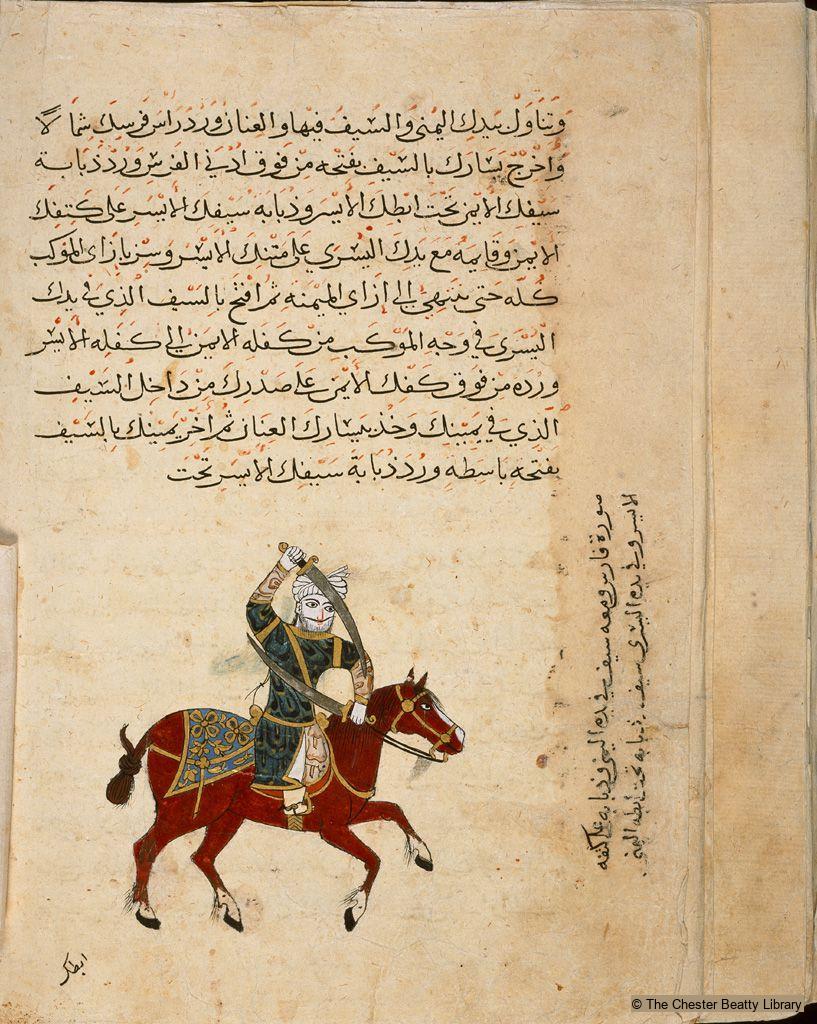 وتناول بيدك اليمنى والسيف فيها والعنان ورد راس فرسك شمالا
واخرج يسارك بالسيف بفتحه من فوق اذني الفرس ورد ذبابة
سيفك الايمن تحت ابطك الايسر وذبابه سيفك الايسر على كتفك
الايمن وقايمه مع يدك اليسرى على متنك الايسر وسر بازاى الموكب
كله حتى ينتهي الى ازاي الميمنه ثم افتح بالسيف الذي في يدك
اليسرى في وجه الموكب من كفله الايمن الى كفله الايسر
ورده من فوق كفك الايمن على صدرك من داخل السيف
الذي في يمينك وخذ بيسارك العنان ثم اخر يمينك بالسيف
بفتحه باسطه ورد ذبابة سيفك الايسر تحت
صورة فارس ومعه سيف في يده اليمنى وذبابه على كتفه
الايسر وفي يده اليسرى سيف ذبابه تحت ابطه اليمنى
ابطك
© The Chester Beatty Library